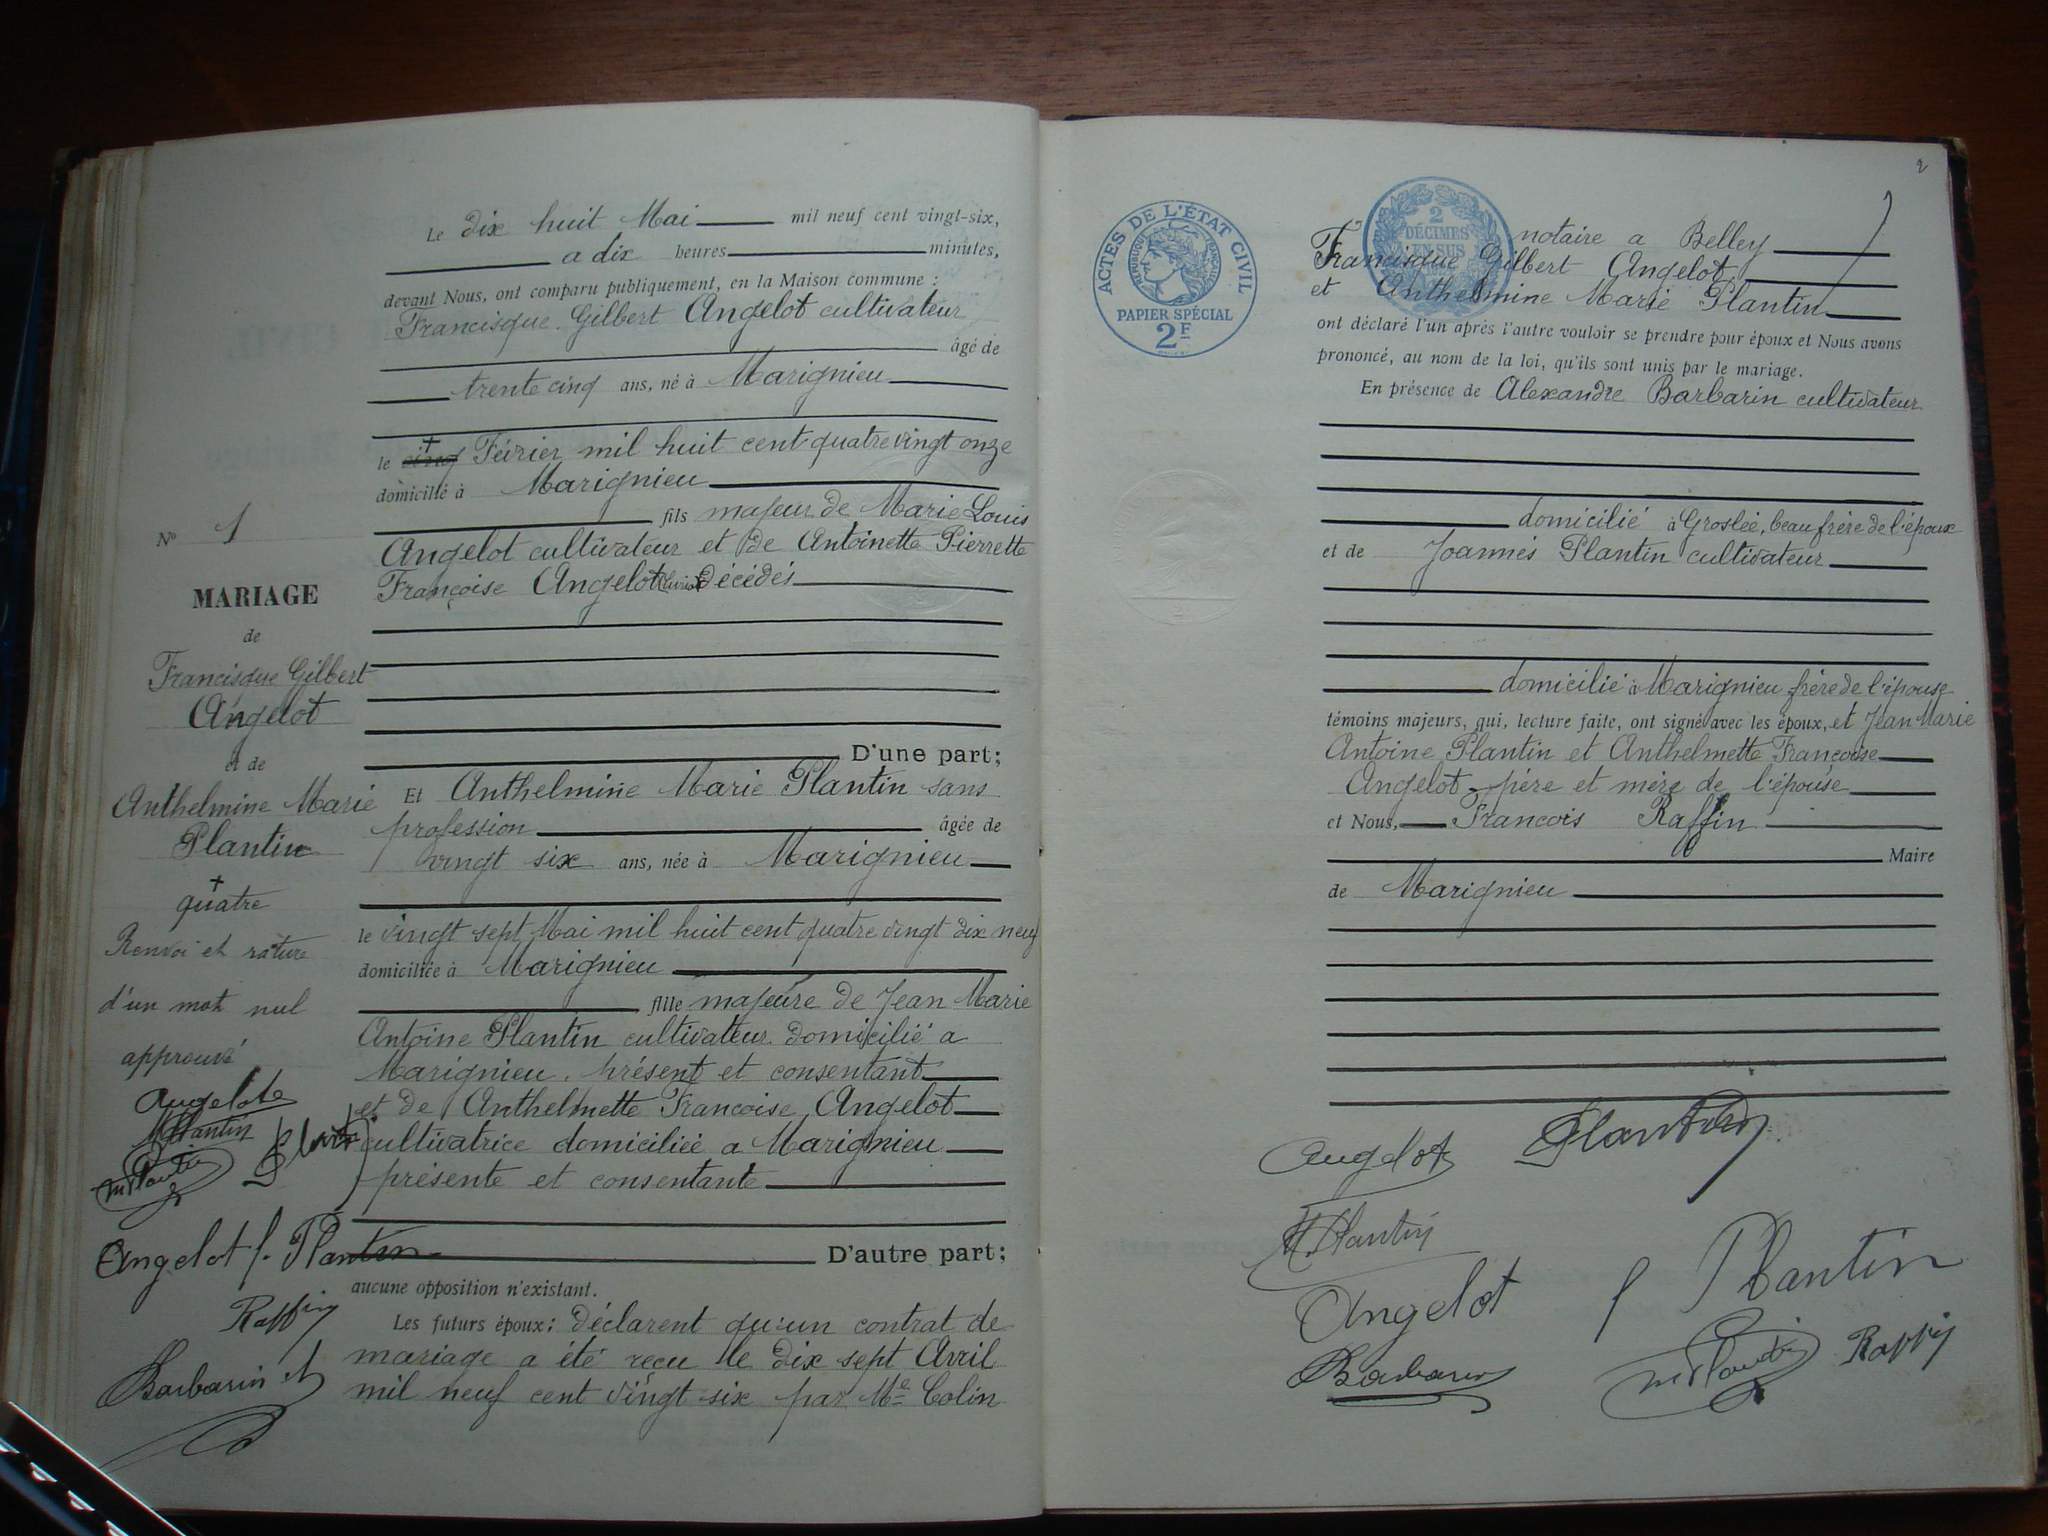 Le dix huit Mai mil neuf cent vingt-six,
a dix heures minutes,
devant Nous, ont comparu publiquement, en la Maison commune :
Francisque Gilbert Angelot cultivateur
âgé de
trente cinq ans, né à Marignieu
le cinq Février mil huit cent quatre vingt onze
domicilié à Marignieu
fils majeur de Marie Louis
Angelot cultivateur et de Antoinette Pierrette
Françoise Angelot décédés
D'une part;
Et Anthelmine Marie Plantin sans
profession âgée de
vingt six ans, née à Marignieu
le vingt sept Mai mil huit cent quatre vingt dix neuf
domiciliée à Marignieu
fille majeure de Jean Marie
Antoine Plantin cultivateur domicilié a
Marignieu, présent et consentant
et de Anthelmette Francoise Angelot
cultivatrice domiciliée a Marignieu
présente et consentante
D'autre part;
aucune opposition n'existant.
Les futurs époux: déclarent qu'un contrat de
mariage a été reçu le dix sept Avril
mil neuf cent vingt six par Me Colin
No 1
MARIAGE
de
Francisque Gilbert
Angelot
et de
Anthelmine Marie
Plantin
quatre
Renvoi et rature
d'un mot nul
approuvé
Angelot
M Plantin
Plantin
Angelot f. Plantin
Raffin
Barbarin
2
ACTES DE L'ÉTAT CIVIL
RÉPUBLIQUE FRANÇAISE
PAPIER SPÉCIAL
2F
2
DÉCIMES
EN SUS
notaire a Belley
Francisque Gilbert Angelot
et Anthelmine Marie Plantin
ont déclaré l'un après l'autre vouloir se prendre pour époux et Nous avons
prononcé, au nom de la loi, qu'ils sont unis par le mariage.
En présence de Alexandre Barbarin cultivateur
domicilié à Groslée, beau frère de l'époux
et de Joannés Plantin cultivateur
domicilié à Marignieu frère de l'épouse
témoins majeurs, qui, lecture faite, ont signé avec les époux, et Jean Marie
Antoine Plantin et Anthelmette Françoise
Angelot père et mère de l'épouse
et Nous, Francois Raffin
Maire
de Marignieu
Angelot Plantin
M. Plantin
Angelot f Plantin
Barbarin m Plantin Raffin